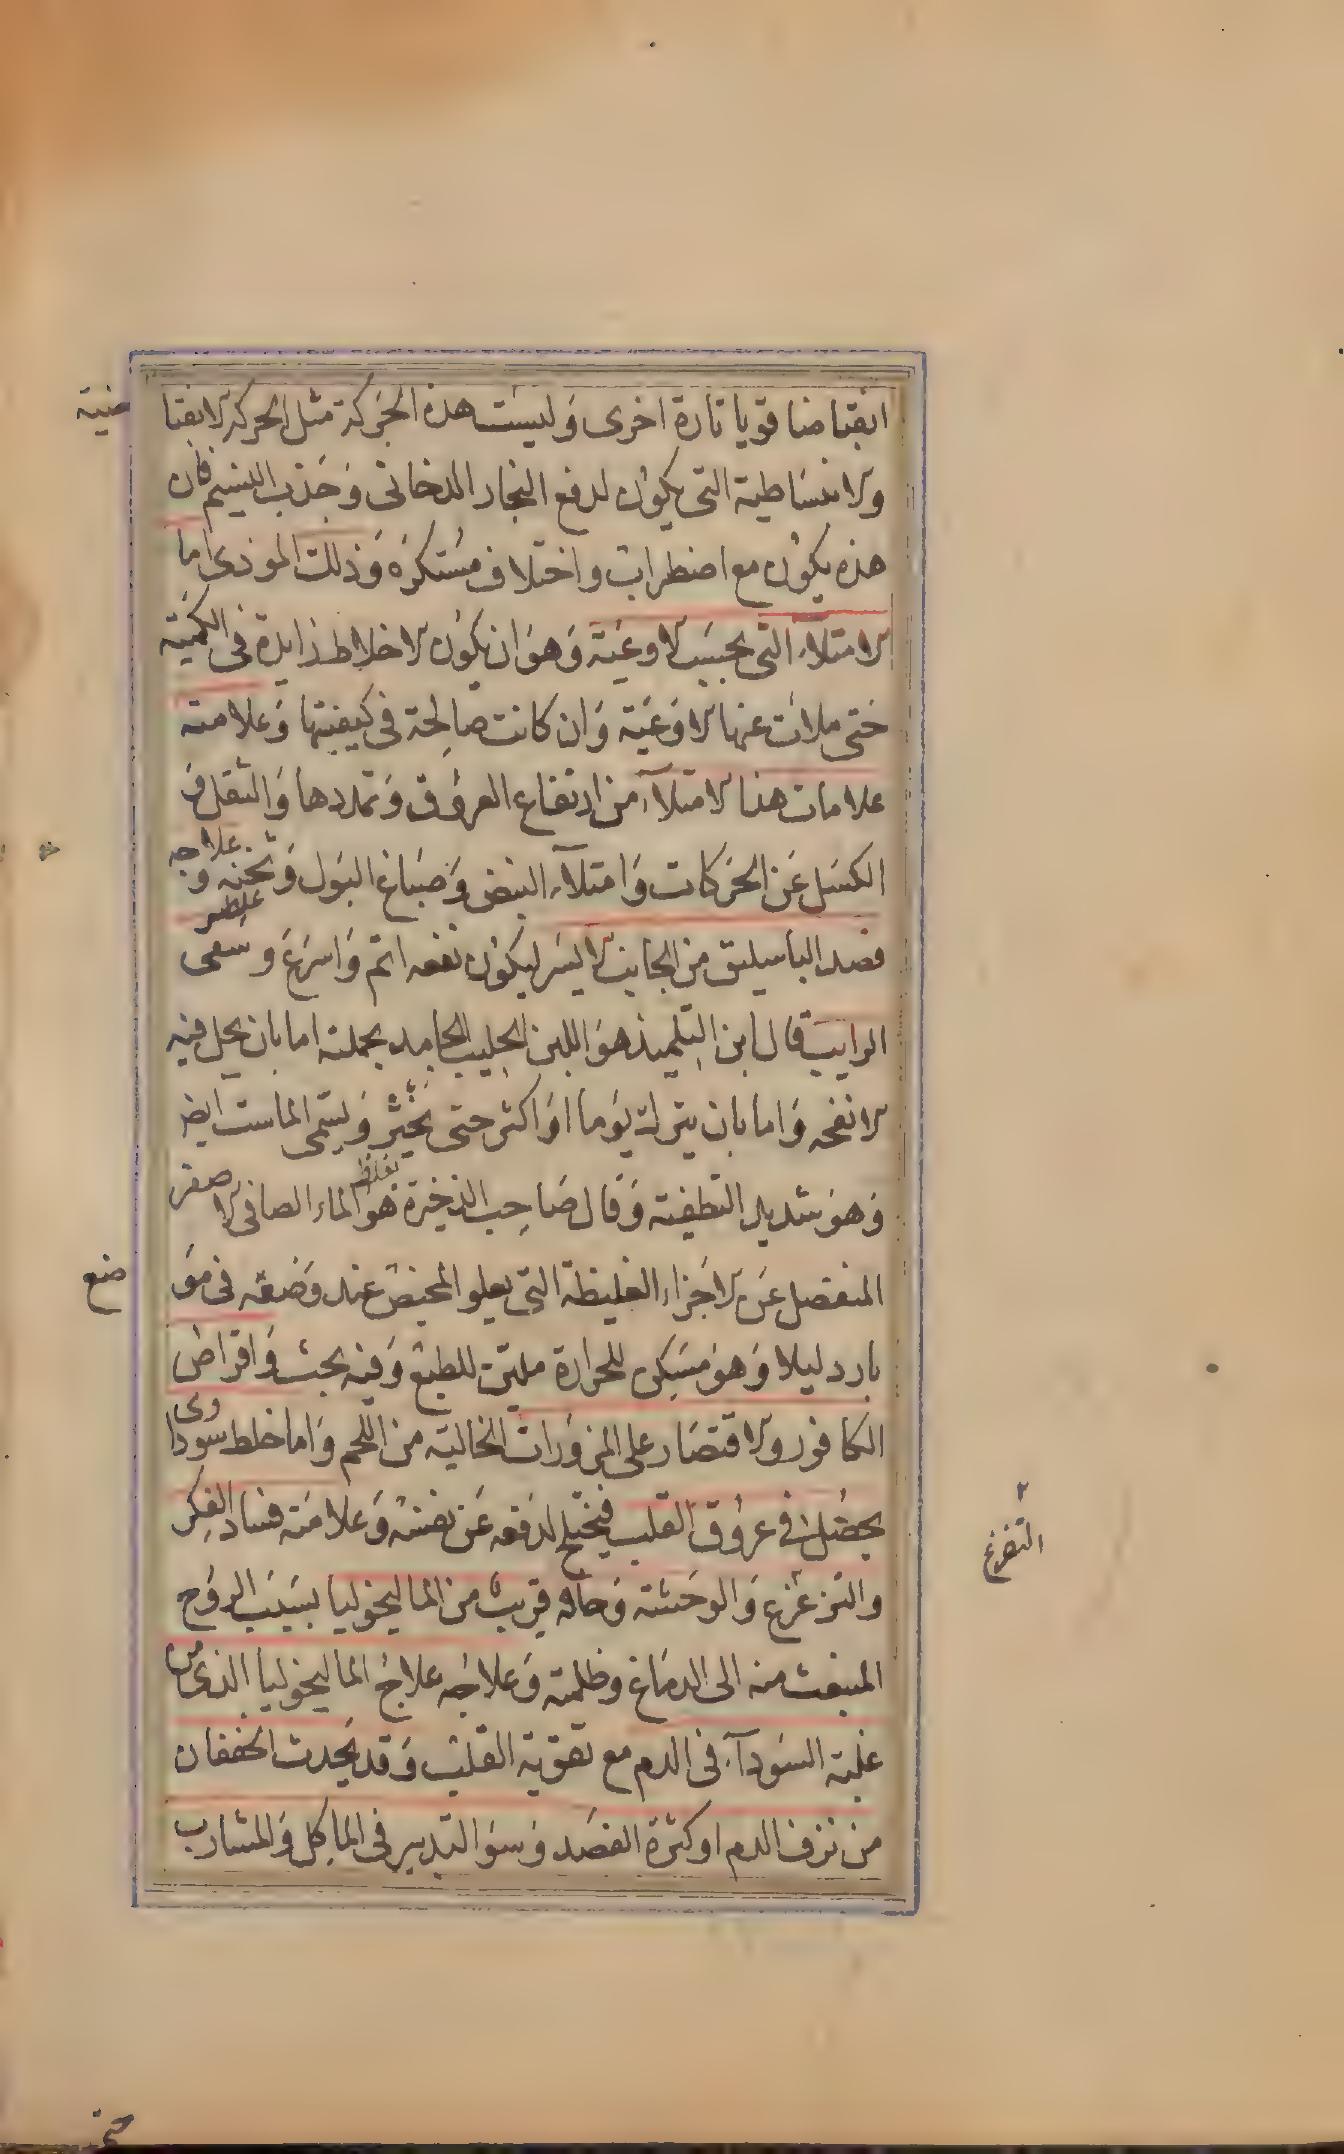 انقباضا قويا تارة اخرى وليست هذه الحركة مثل الحركة الانقبا
ضية
والانبساطية التى يكون لدفع البخار الدخانى وجذب النسيم فان
هذه يكون مع اضطراب واختلاف مستكره وذلك الموذى اما
الامتلاء التى بحسب الاوعية وهو ان يكون الاخلاط زايدة فى الكمية
حتى ملات عنها الاوعية وان كانت صالحة فى كيفيتها وعلامته
علامات هذا الامتلاء من ارتفاع العروق وتمددها والثقل و
الكسل عن الحركات وامتلاء النبض وصباغ البول وثخنه وعلاجه
فصد الباسليق من الجانب الايسر ليكون نفعه اتم واسرع وسقى
الرايب قال ابن التلميذ هو اللبن الحليب الجامد بجملته اما بان يحل فيه
الانفحه واما بان يترك يوما او اكثر حتى يخثر ويسمى الماست ايض
وهو شديد التطفية وقال صاحب الذخيرة هو الماء الصافى الاصفر
المنفصل عن الاجزاء الغليظة التى يعلو المخيض عند وضعه فى مو
ضع
بارد ليلا وهو مسكن للحرارة ملين للطبع وفيه بحث واقراص
الكافور والاقتصار على المزورات الخالية من اللحم واما خلط سوداوى
يحصل فى عروق القلب فيختلج لدفعه عن نفسه وعلامته فساد الفكر
التفزغ
والتزعزع والوحشة وحاله قريب من الماليخوليا بسبب الروح
المنبعث منه الى الدماغ وظلمته وعلاجه علاج الماليخوليا الذى من
غلبة السوداء فى الدم مع تقوية القلب وقد يحدث الخفقان
من نزف الدم او كثرة الفصد وسو التدبير فى الماكل والمشارب